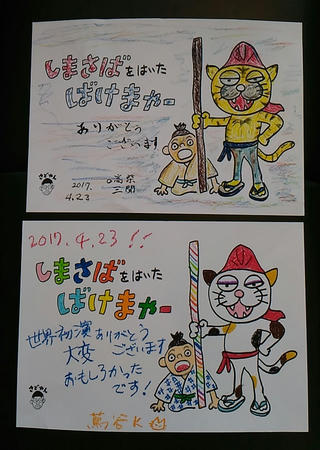 しまさばをはいた
ばけまゃー
ありがとう
ございます
2017.
4.23
さどやん
2017.4.23!!
しまさばをはいた
ばけまゃー
世界初演ありがとう
大変ございます
おもしろかった
です!
さどやん